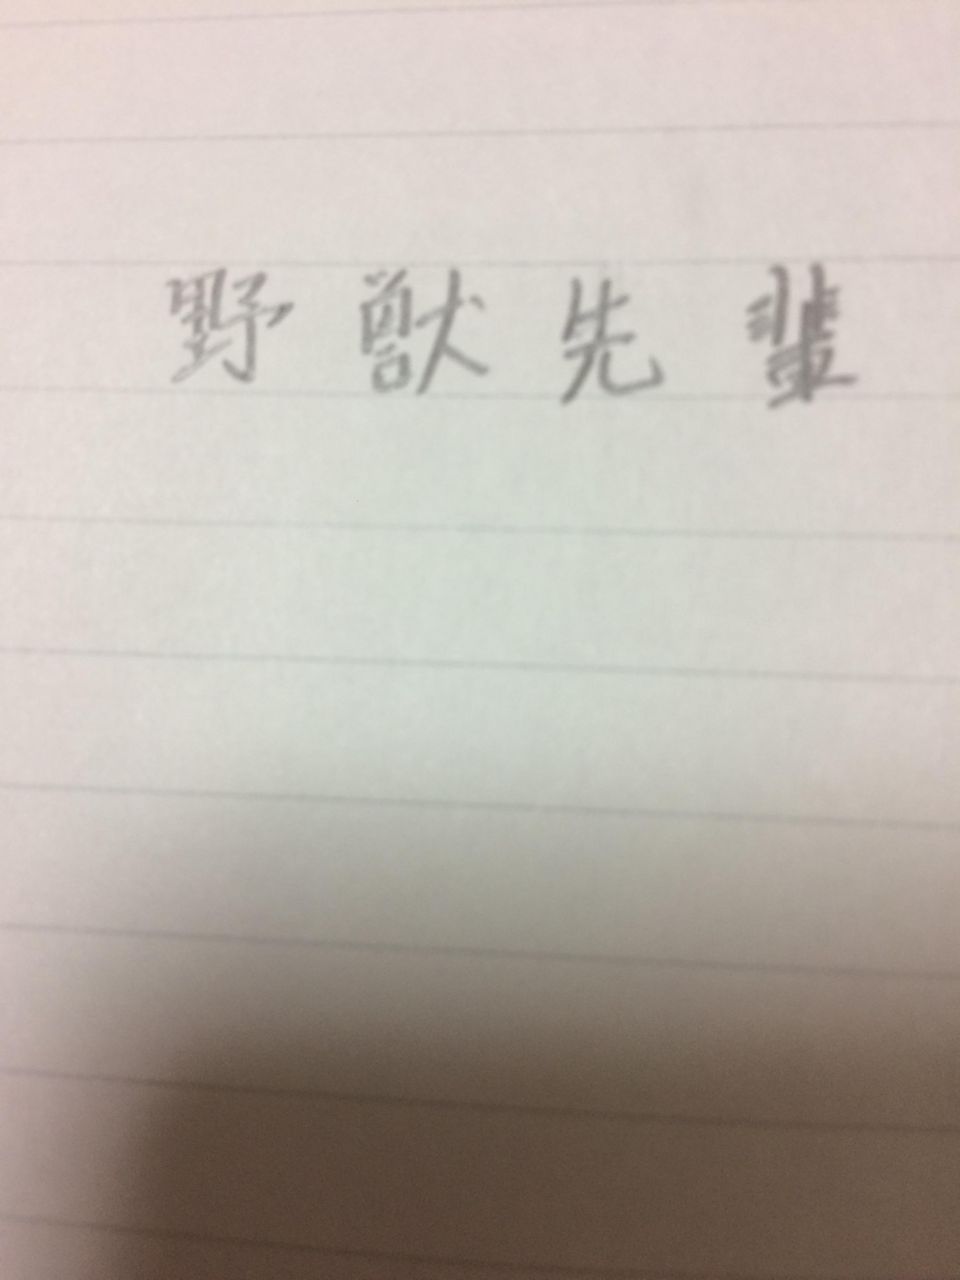 野獣先輩